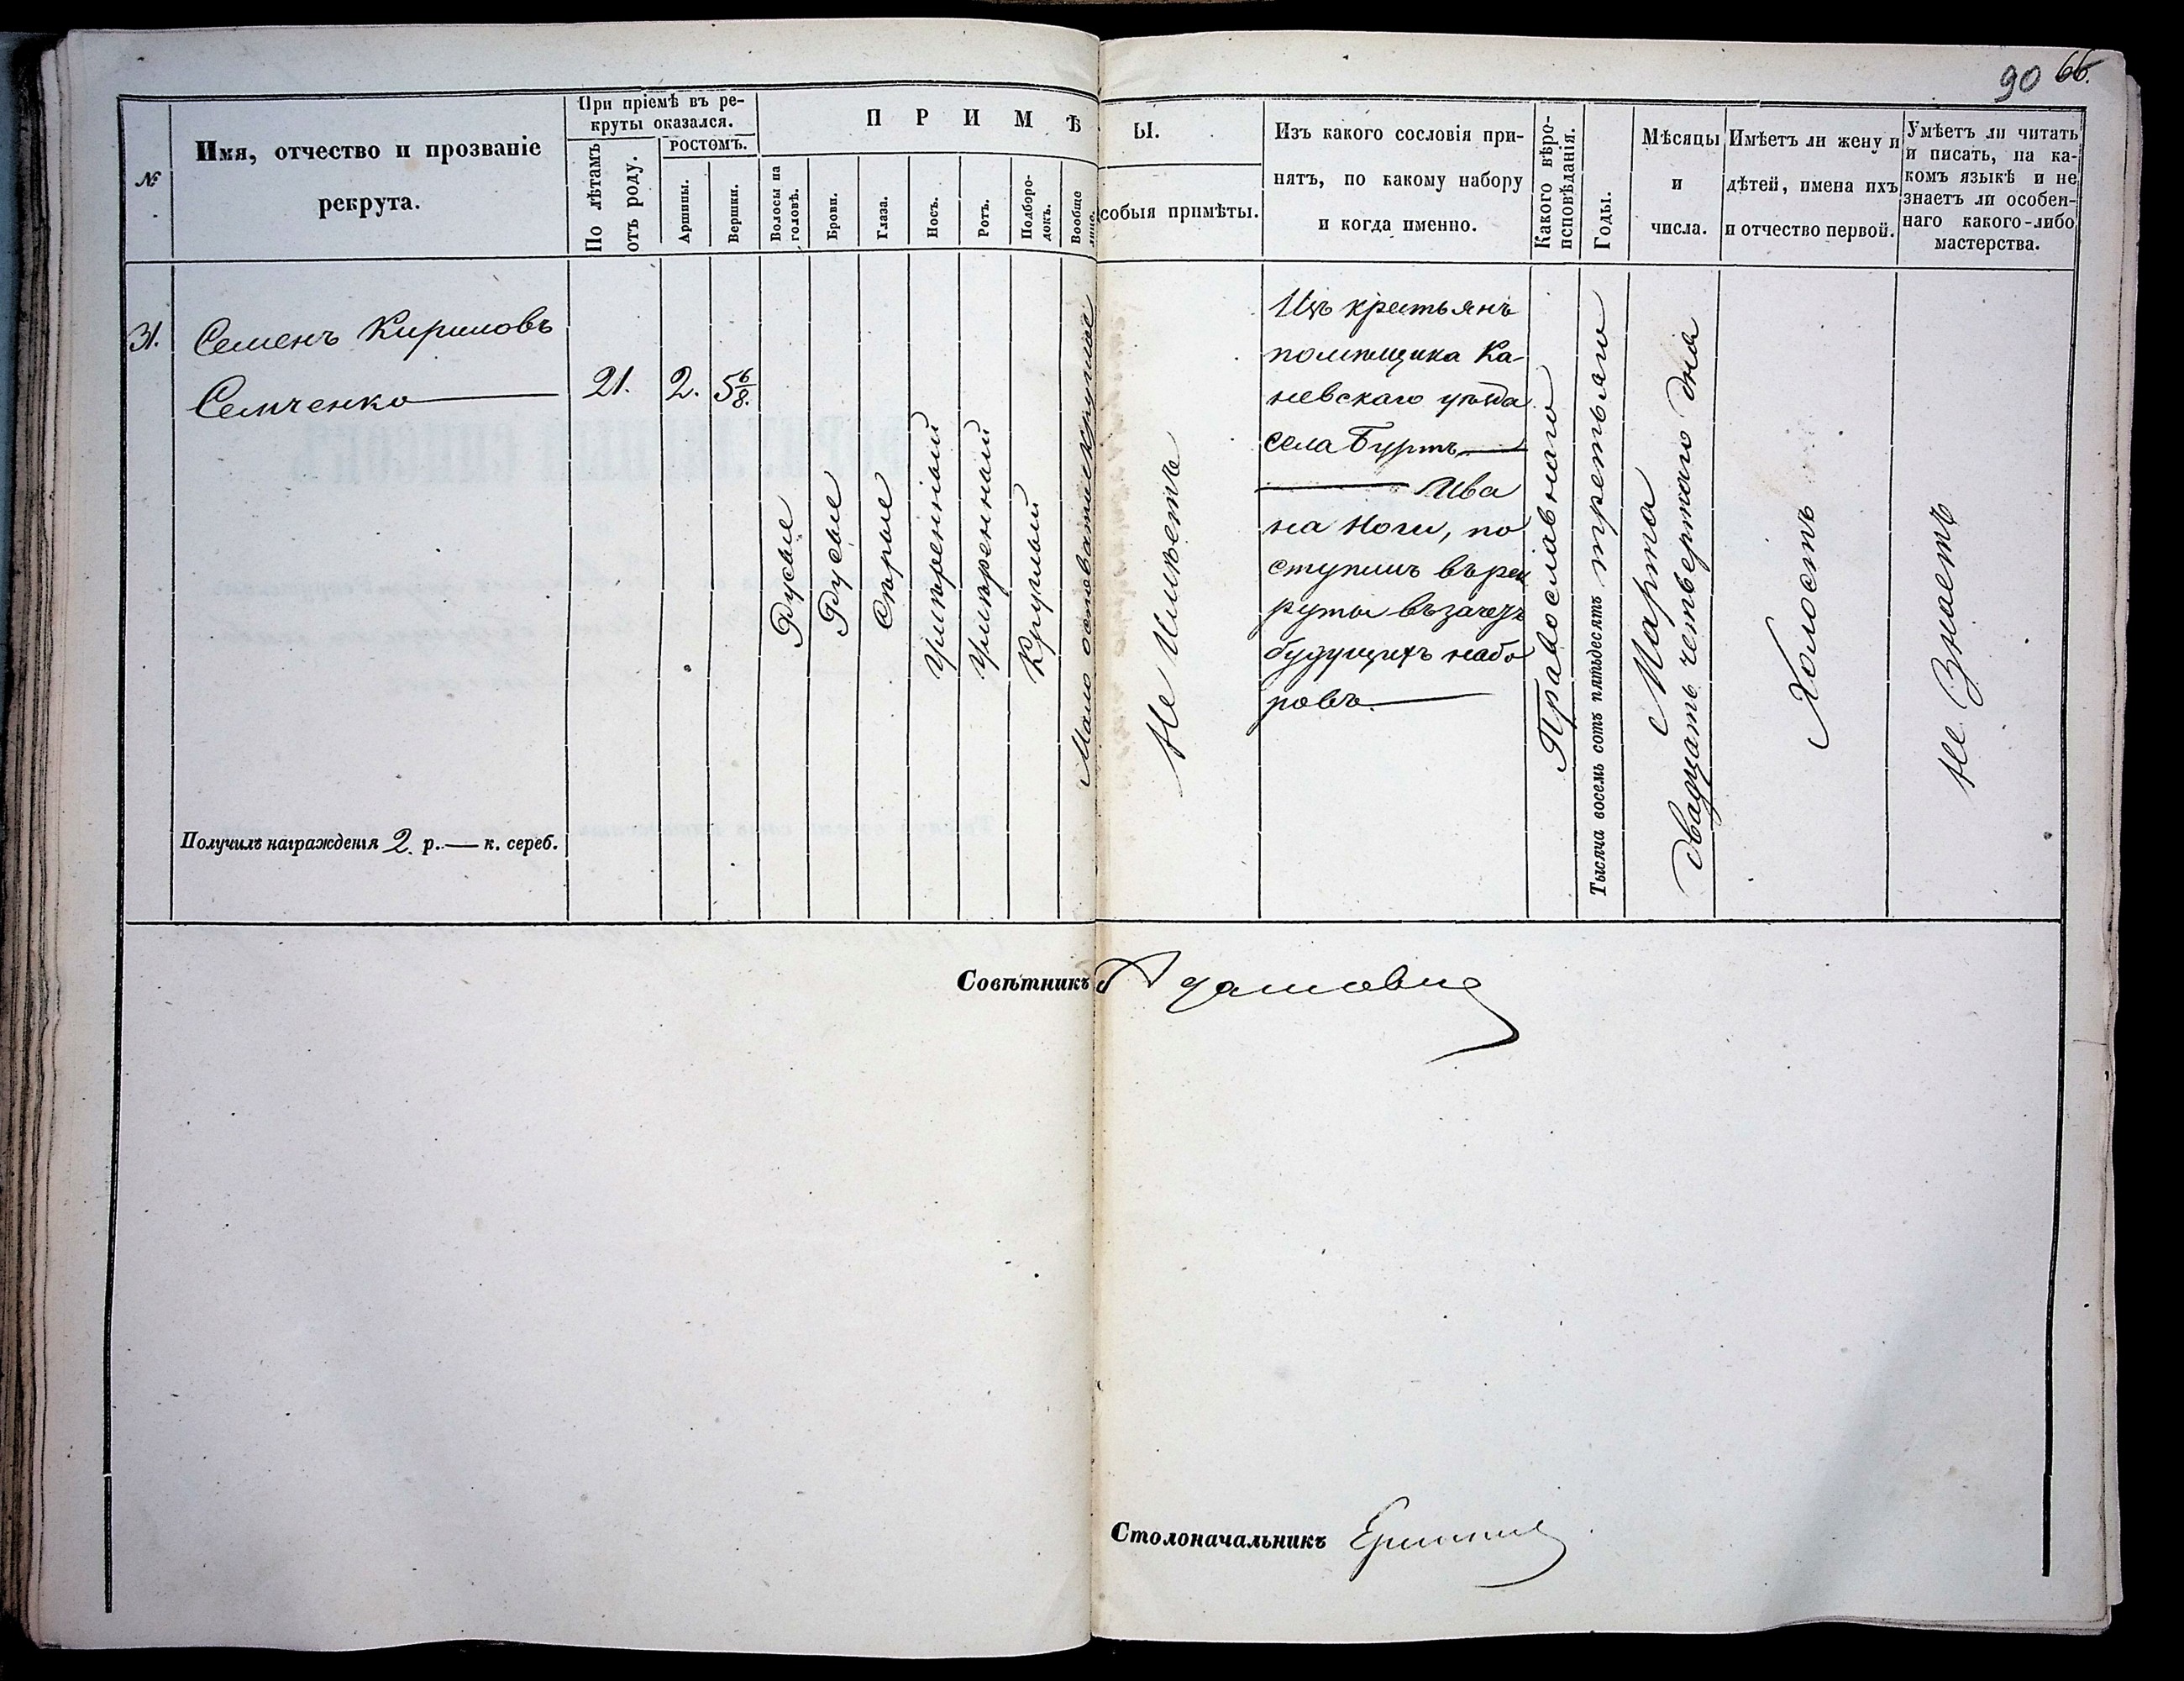 90 66.
№
Имя, отчество и прозваніе
рекрута.
При пріемѣ въ ре-
круты оказался.
По лѣтамъ
отъ роду.
РОСТОМЪ.
Аршины.
Вершки.
ПРИМѢ
Ы.
Волосы на
головѣ.
Брови.
Глаза.
Носъ.
Ротъ.
Подборо-
докъ.
Вообще
лицо.
собыя примѣты.
Изъ какого сословія при-
нятъ, по какому набору
и когда именно.
Какого вѣро-
исповѣданія.
Годы.
Мѣсяцы
и
числа.
Имѣетъ ли жену и
дѣтей, имена ихъ
и отчество первой.
Умѣетъ ли читать
и писать, на ка-
комъ языкѣ и не
знаетъ ли особен-
наго какого-либо
мастерства.
31.
Семенъ Кириловъ
Семченко
21.
2.
5 6/8.
Русые
Русые
Сѣрые
Умѣренный
Умѣренный
Круглый
Мало островатисккруглое
Не Имѣетъ
Изъ крестьянъ
помѣщика Ка-
невскаго уѣзда
села Буртъ
Ива
на Ноги, по
ступилъ въ рек
руты въ зачетъ
будущихъ набо
ровъ.
Православнаго
Тысяча восемь сотъ пятьдесятъ третьяго
Марта
двадцать четвертаго дня
Холостъ
Не Знаетъ
Получилъ награжденія 2. р. — к. сереб.
Совѣтникъ
Столоначальникъ